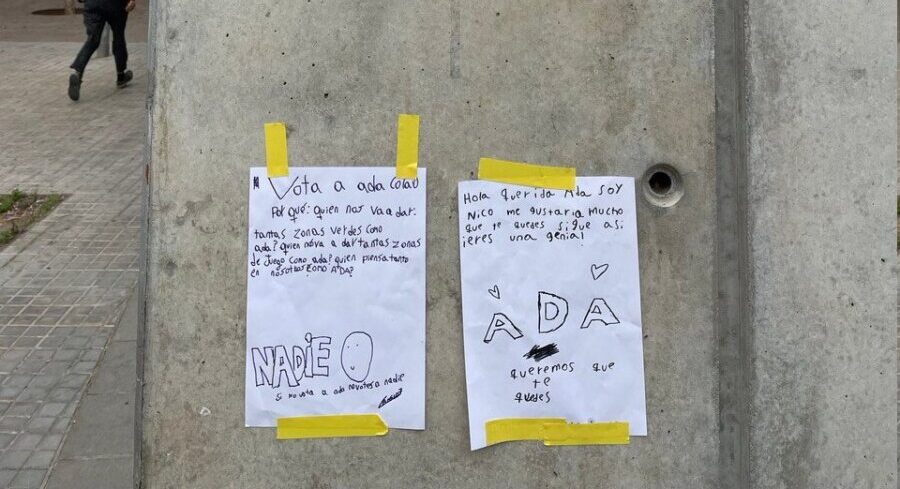 Vota a ada Colau
Por qué: quien nos va a dar
tantas zonas verdes como
ada? quien nova a dar tantas zonas
de juego como ada? quien piensa tanto
en nosotros como ADA?
NADIE
Si no vota a ada no votes a nadie
Hola querida Ada soy
Nico me gustaria mucho
que te quedes sigue asi
ieres una genia!
ADA
queremos que
te
quedes